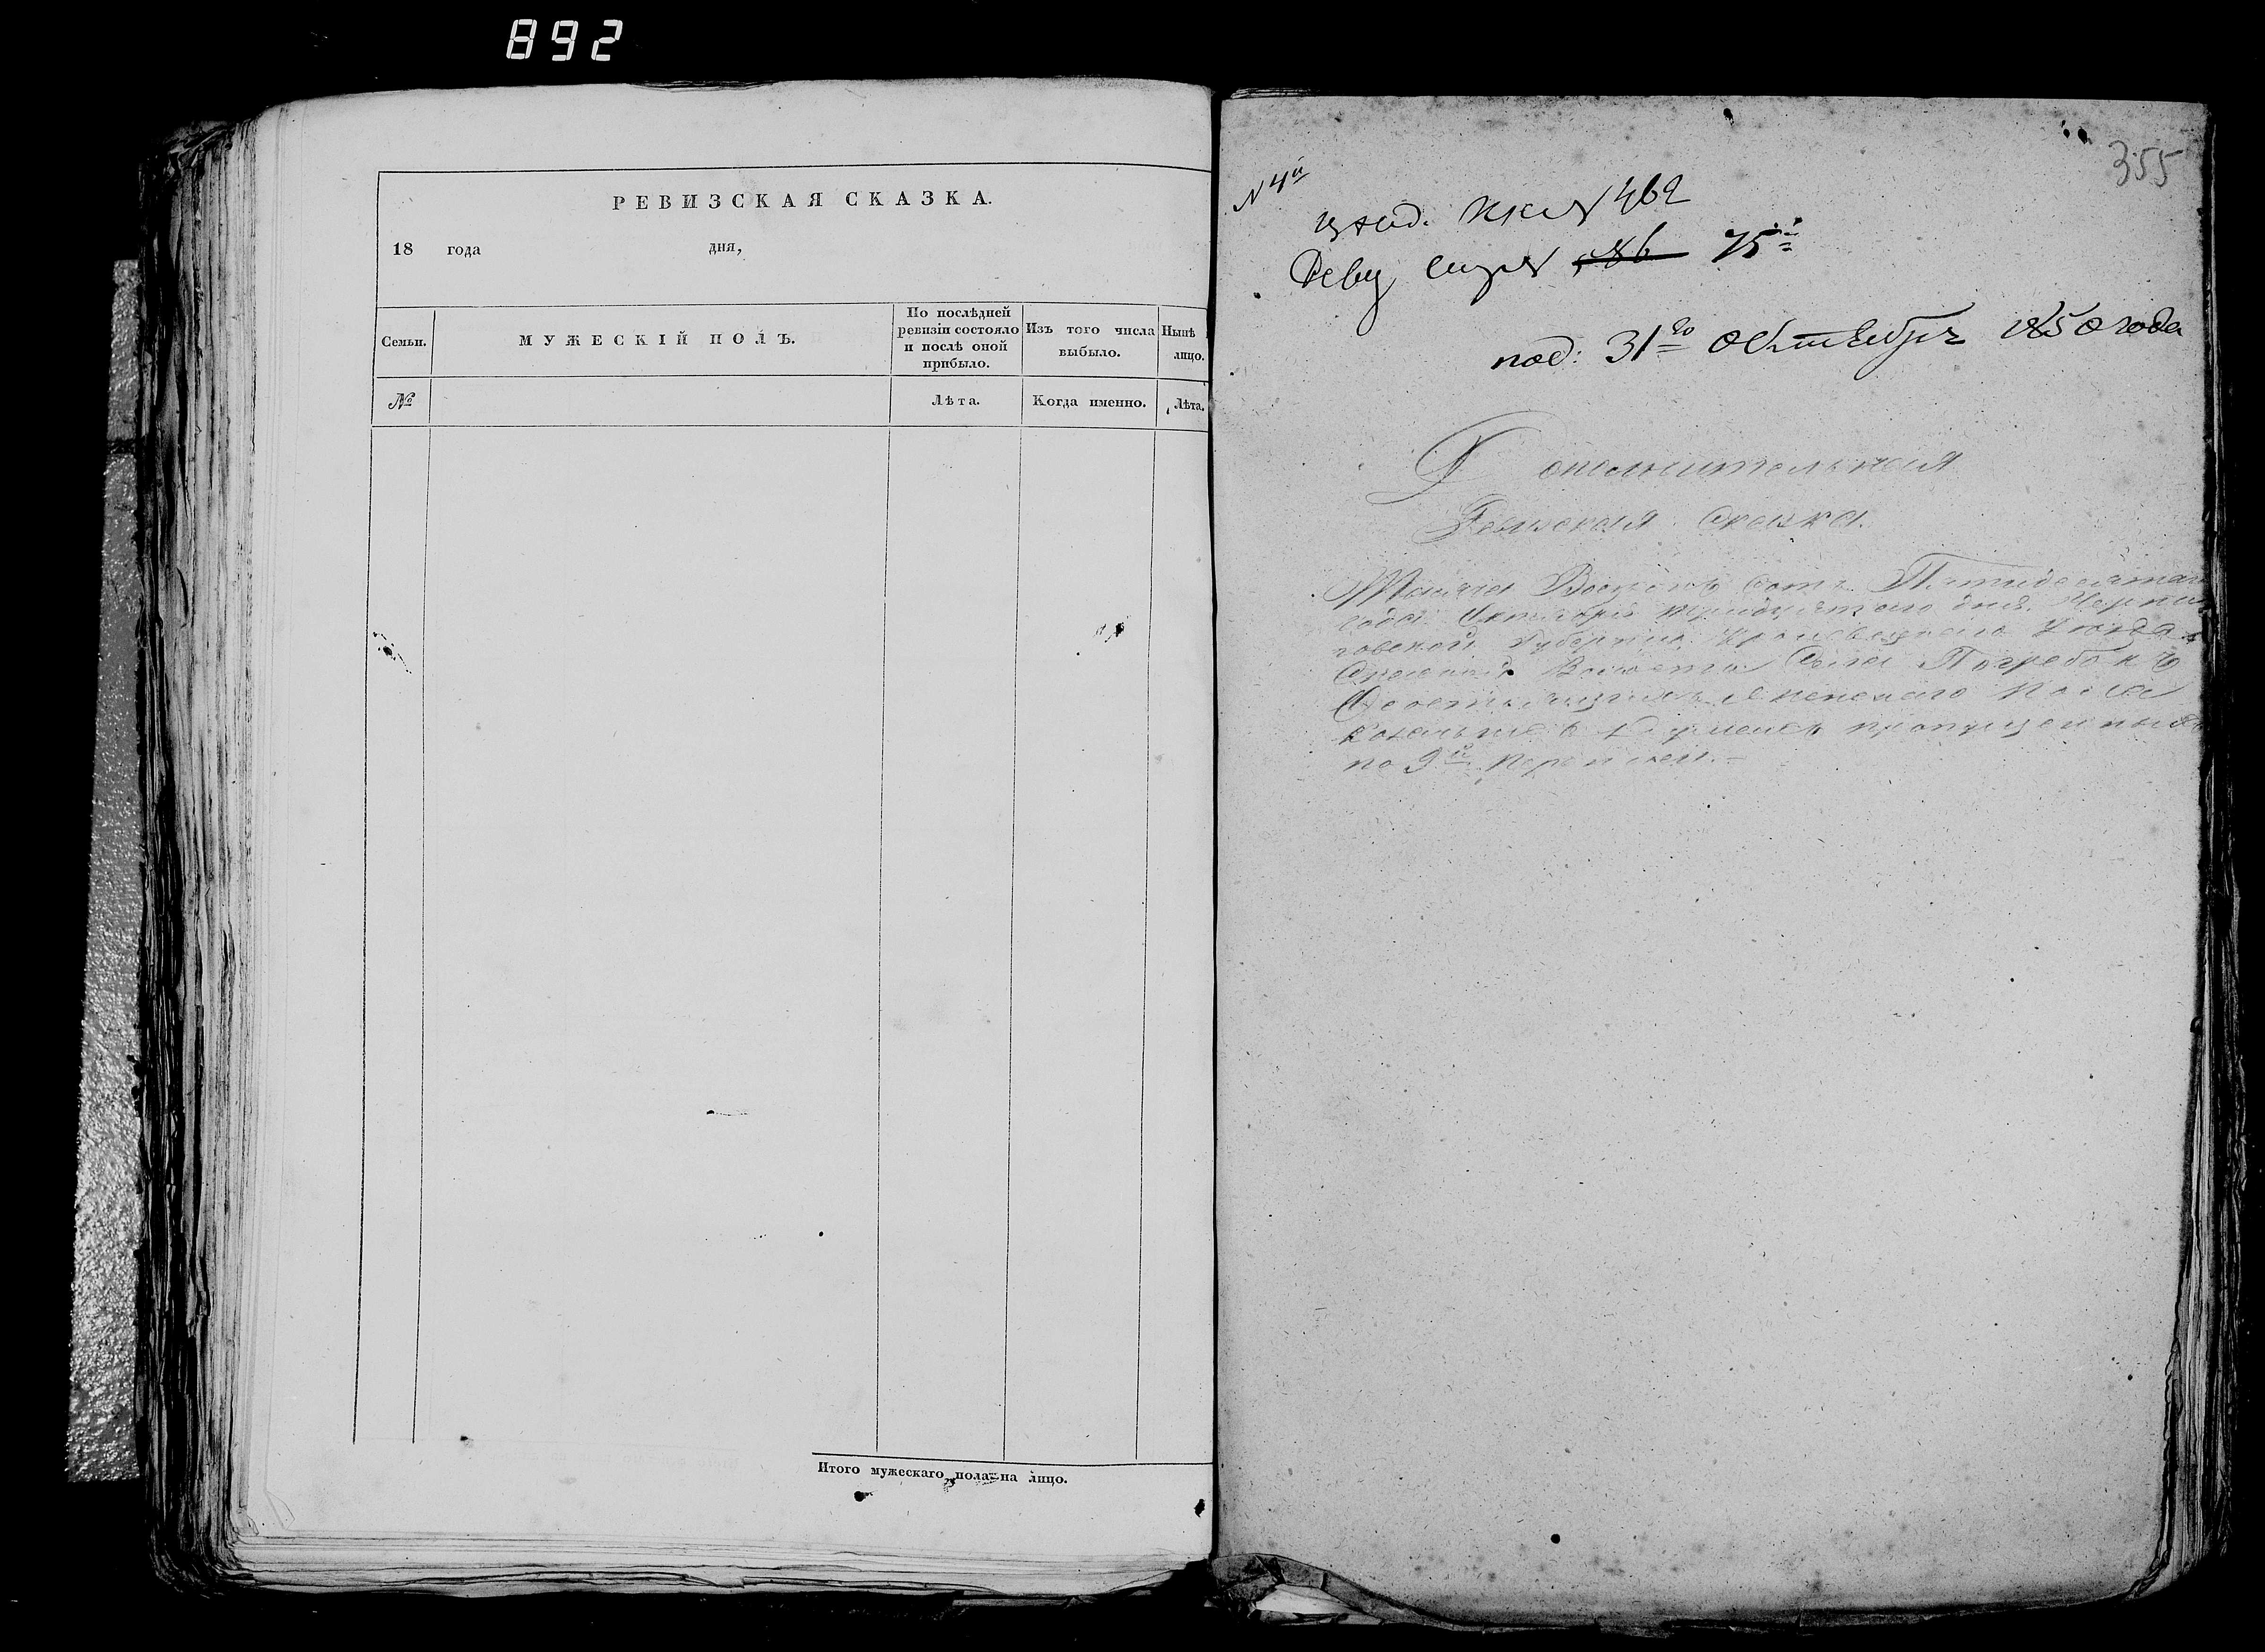 892
РЕВИЗСКАЯ СКАЗКА.
18 года дня,
Семьи.
МУЖЕСКІЙ ПОЛЪ.
По послѣдней
ревизіи состояло
и послѣ оной
прибыло.
Изъ того числа
выбыло.
Нынѣ
лицо.
№
Лѣта.
Когда именно.
Лѣта.
Итого мужескаго пола на лицо.
355
N 4й
462
75
под: 31го Октября 1850 года
Дополнительная
Ревиская Сказка.
Тысяча Восемь сотъ Пятидесятаго
года Октября дня Черни
говской Губерніи Кролевецкаго Уѣзда
Волости Села Погребокъ
пропущенныхъ
по 9й Переписи.